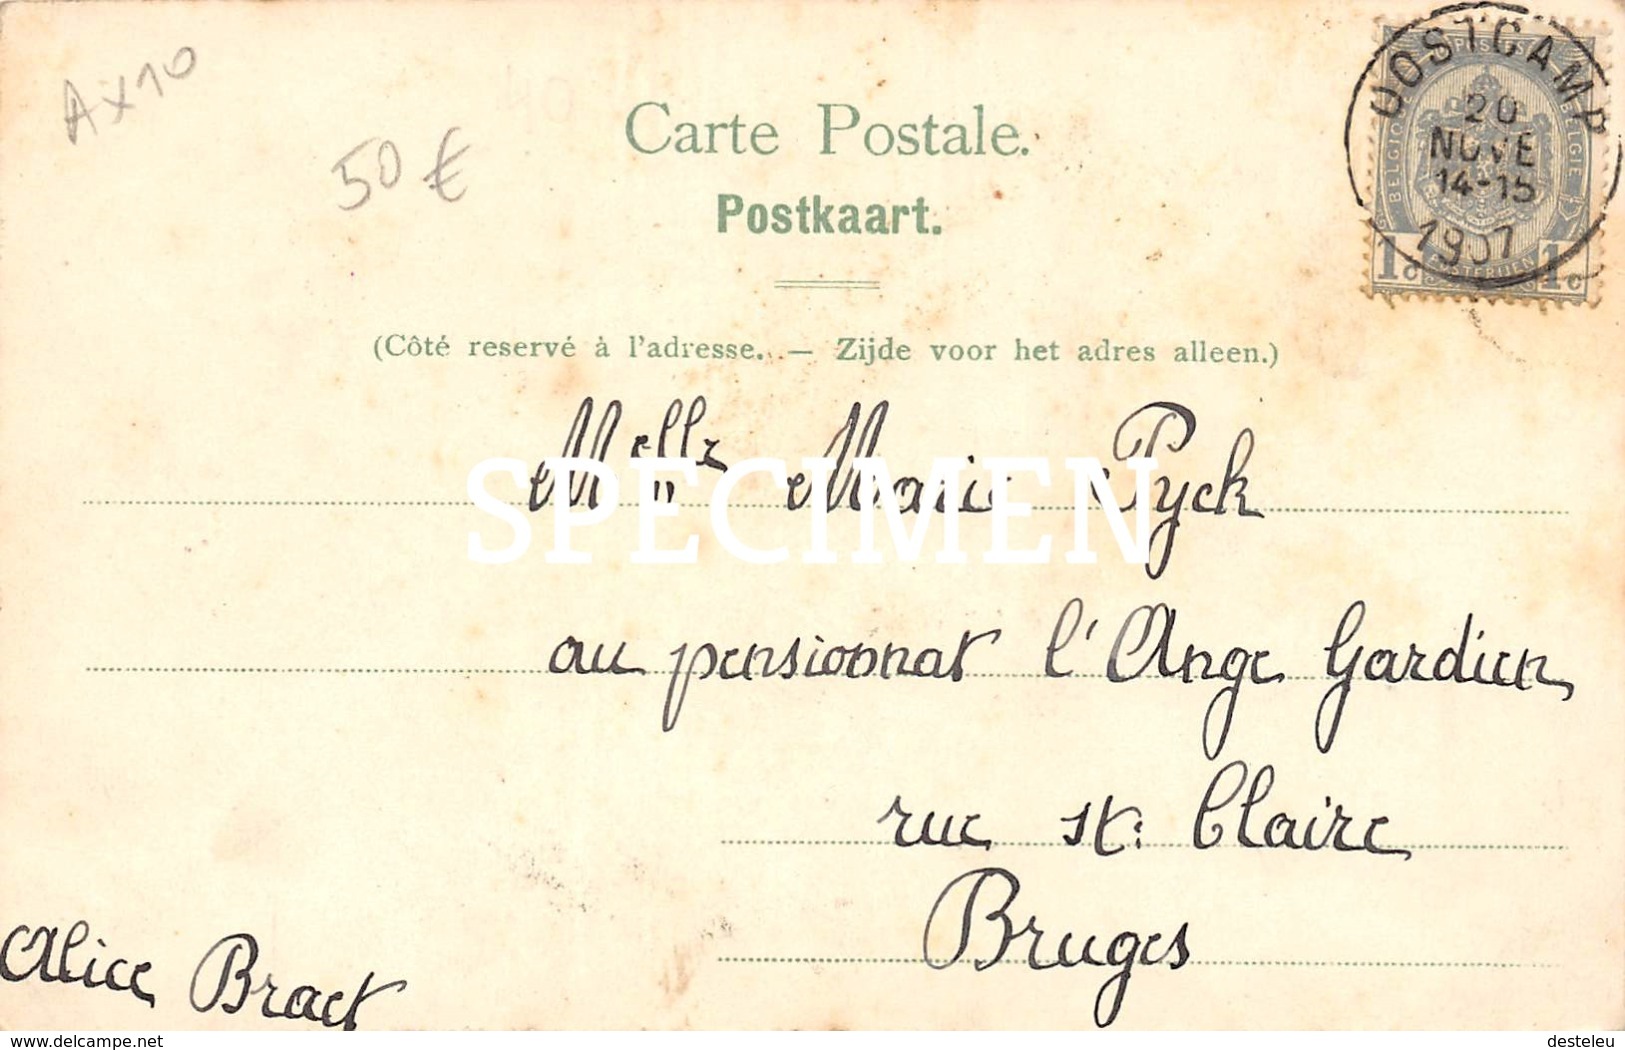 Ax10
50 €
Carte Postale.
Postkaart.
(Côté reservé à l'adresse. — Zijde voor het adres alleen.)
OOSTCAMP
20
NOVE
14-15
1907
BELGIQUE
BELGIE
1c 1c
Melle Marie Pyck
SPECIMEN
au pensionnat l'Ange Gardien
rue St: Claire
Bruges
Alice Braet
www.delcampe.net
desteleu